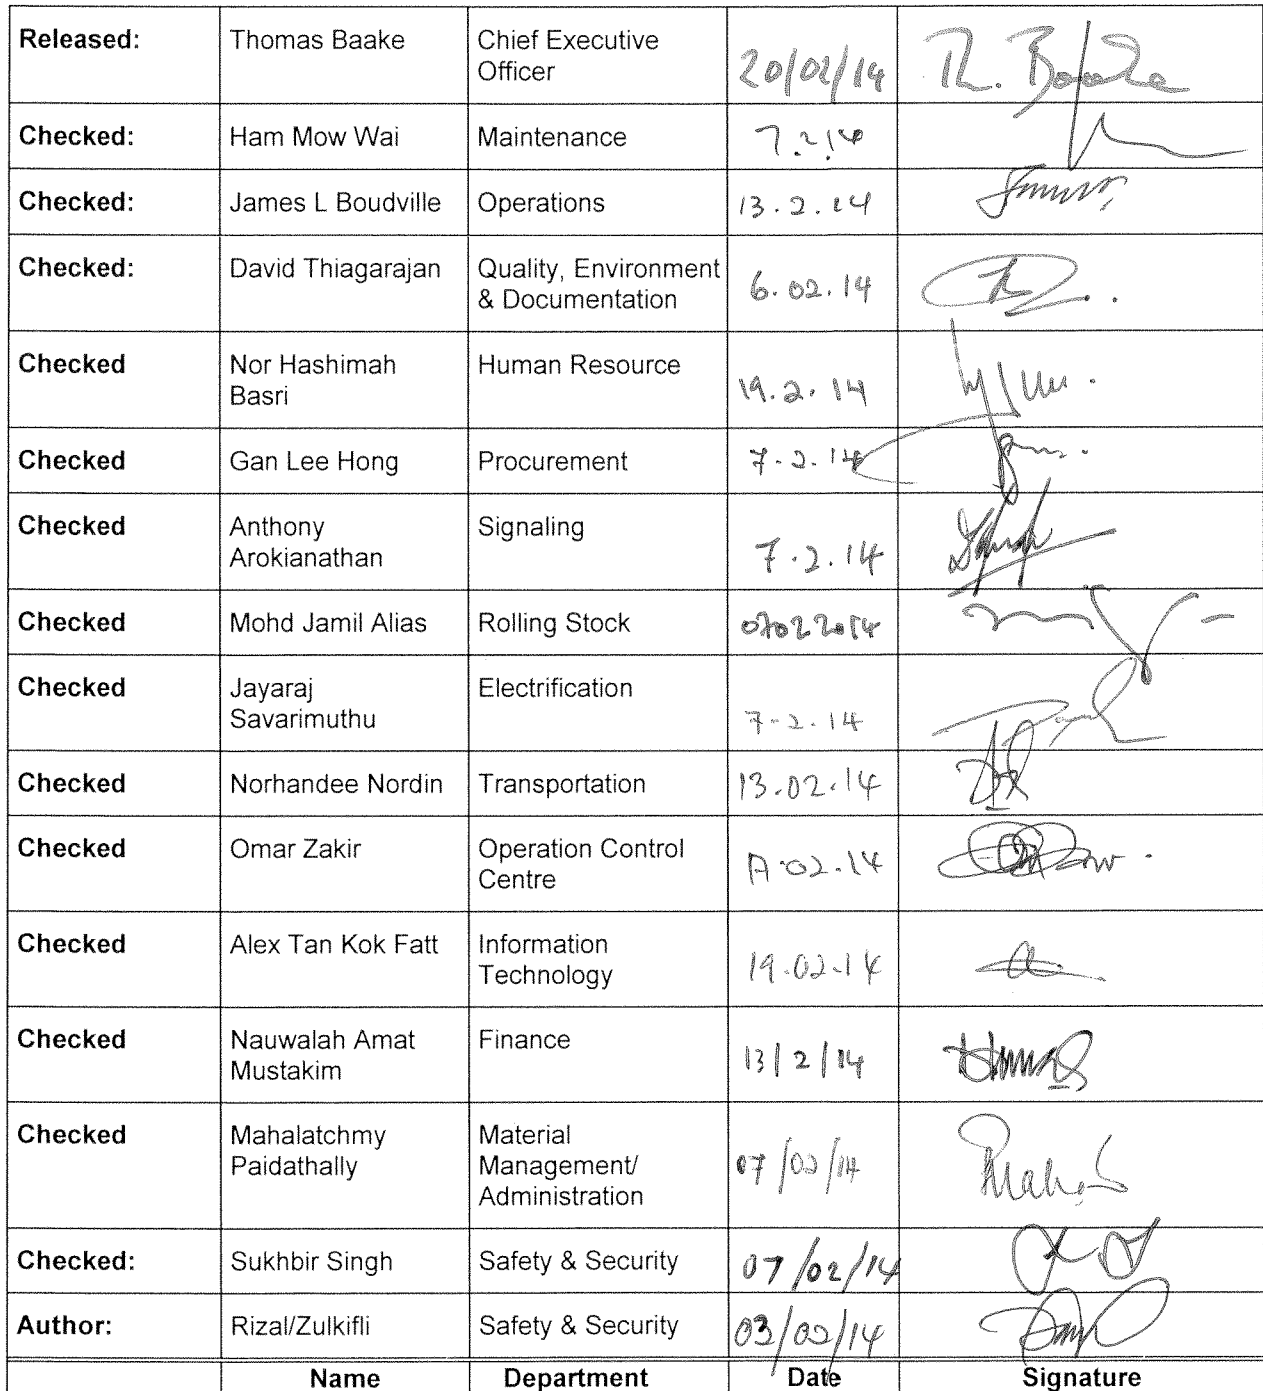 Released: Thomas Baake Chief Executive 20/02/14 Th. Baake
Officer
Checked: Ham Mow Wai Maintenance 7.2.14
Checked: James L Boudville Operations 13.2.14
Checked: David Thiagarajan Quality, Environment 6.02.14
& Documentation
Checked Nor Hashimah Human Resource 19.2.14
Basri
Checked Gan Lee Hong Procurement 7.2.14
Checked Anthony Signaling 7.2.14
Arokianathan
Checked Mohd Jamil Alias Rolling Stock 07022014
Checked Jayaraj Electrification 7-2-14
Savarimuthu
Checked Norhandee Nordin Transportation 13.02.14
Checked Omar Zakir Operation Control
Centre
Checked Alex Tan Kok Fatt Information 19.02.14
Technology
Checked Nauwalah Amat Finance 13/2/14
Mustakim
Checked Mahalatchmy Material 07/02/14
Paidathally Management/
Administration
Checked: Sukhbir Singh Safety & Security 07/02/14
Author: Rizal/Zulkifli Safety & Security 03/02/14
Name Department Date Signature